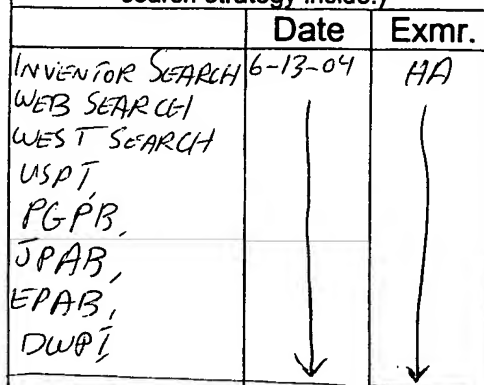 search strategy inside.)
Date Exmr.
INVENTOR SEARCH 6-13-04 HA
WEB SEARCH
WEST SEARCH
USPT,
PGPB,
JPAB,
EPAB,
DWPI